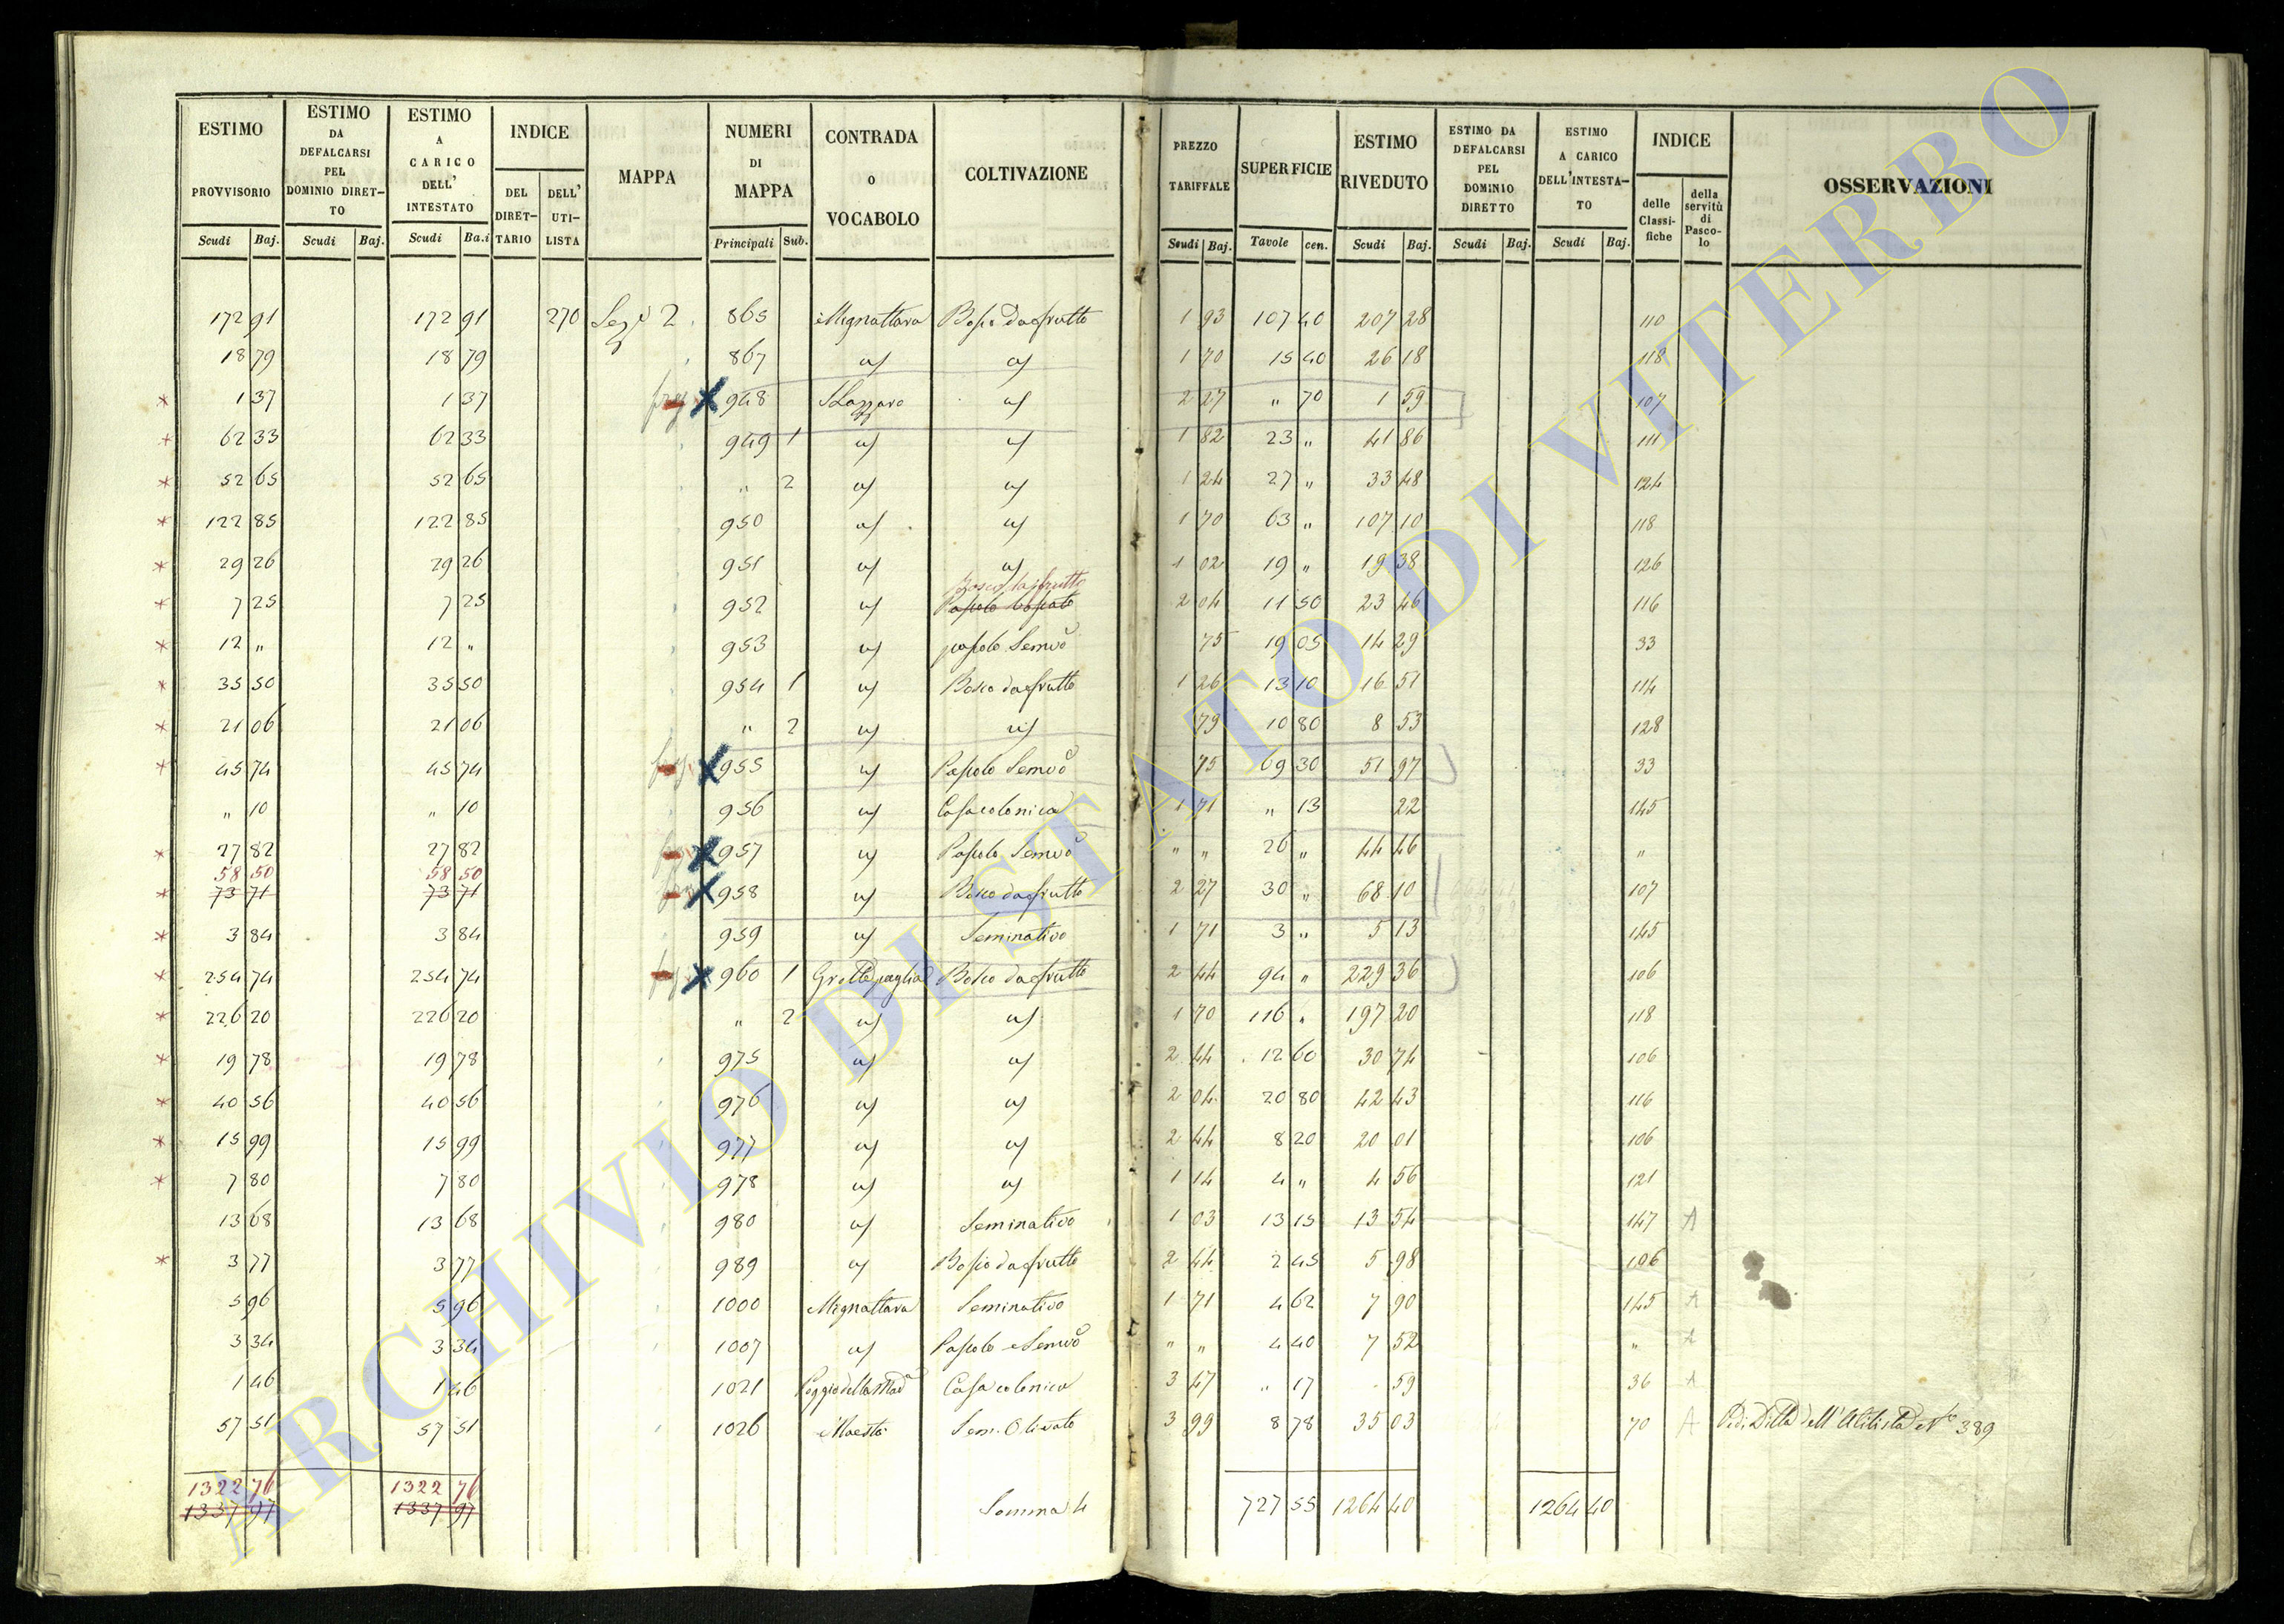 ESTIMO PROVVISORIO Scudi Baj. | ESTIMO DA DEFALCARSI PEL DOMINIO DIRET-TO Scudi Baj. | ESTIMO A CARICO DELL' INTESTATO Scudi Ba.i | INDICE DEL DIRET-TARIO DELL' UTI-LISTA | MAPPA | NUMERI DI MAPPA Principali Sub. | CONTRADA O VOCABOLO | COLTIVAZIONE | PREZZO TARIFFALE Scudi Baj. | SUPERFICIE Tavole cen. | ESTIMO RIVEDUTO Scudi Baj. | ESTIMO DA DEFALCARSI PEL DOMINIO DIRETTO Scudi Baj. | ESTIMO A CARICO DELL'INTESTA-TO Scudi Baj. | INDICE delle Classi-fiche della servitù di Pasco-lo | OSSERVAZIONI
172 91 172 91 270 Sez.e 2. 865 Mignattara Bosco da frutto 1 93 107 40 207 28 110
18 79 18 79 867 a/ a/ 1 70 15 40 26 18 118
* 1 37 1 37 948 S Lazzaro a/ 2 27 " 70 1 59 107
* 62 33 62 33 949 1 a/ a/ 1 82 23 " 41 86 111
* 52 65 52 65 " 2 a/ a/ 1 24 27 " 33 48 124
* 122 85 122 85 950 a/ a/ 1 70 63 " 107 10 118
* 29 26 29 26 951 a/ a/ 1 02 19 " 19 38 126
Bosco da frutto
* 7 25 7 25 952 a/ Pascolo boscato 2 04 11 50 23 46 116
* 12 " 12 " 953 a/ pascolo Sem.vo 75 19 05 14 29 33
* 35 50 35 50 954 1 a/ Bosco da frutto 1 26 13 10 16 51 114
* 21 06 21 06 " 2 a/ a/ 79 10 80 8 53 128
* 45 74 45 74 955 a/ Pascolo Sem.vo 75 69 30 51 97 33
" 10 " 10 956 a/ Casa colonica 1 71 " 13 22 145
* 27 82 27 82 957 a/ Pascolo Sem.vo " " 26 " 44 46 "
58 50 58 50
* 73 71 73 71 958 a/ Bosco da frutto 2 27 30 " 68 10 107
* 3 84 3 84 959 a/ Seminativo 1 71 3 " 5 13 145
* 254 74 254 74 960 1 Grotta paglia Bosco da frutto 2 44 94 " 229 36 106
* 226 20 226 20 " 2 a/ a/ 1 70 116 " 197 20 118
* 19 78 19 78 975 a/ a/ 2 44 12 60 30 74 106
* 40 56 40 56 976 a/ a/ 2 04 20 80 42 43 116
* 15 99 15 99 977 a/ a/ 2 44 8 20 20 01 106
* 7 80 7 80 978 a/ a/ 1 14 4 " 4 56 121
13 68 13 68 980 a/ Seminativo 1 03 13 15 13 54 147 A
* 3 77 3 77 989 a/ Bosco da frutto 2 44 2 45 5 98 106
5 96 5 96 1000 Mignattara Seminativo 1 71 4 62 7 90 145 A
3 34 3 34 1007 a/ Pascolo Sem.vo " " 4 40 7 52 " A
1 46 1 46 1021 Poggio della Mad.a Casa colonica 3 47 " 17 - 59 36 A
57 51 57 51 1026 Maestà Sem. Olivato 3 99 8 78 35 03 70 A Vedi Ditta dell'Utilista N.o 389
1322 76 1322 76
1337 97 1337 97 Somma 4 727 55 1264 40 1264 40
ARCHIVIO DI STATO DI VITERBO